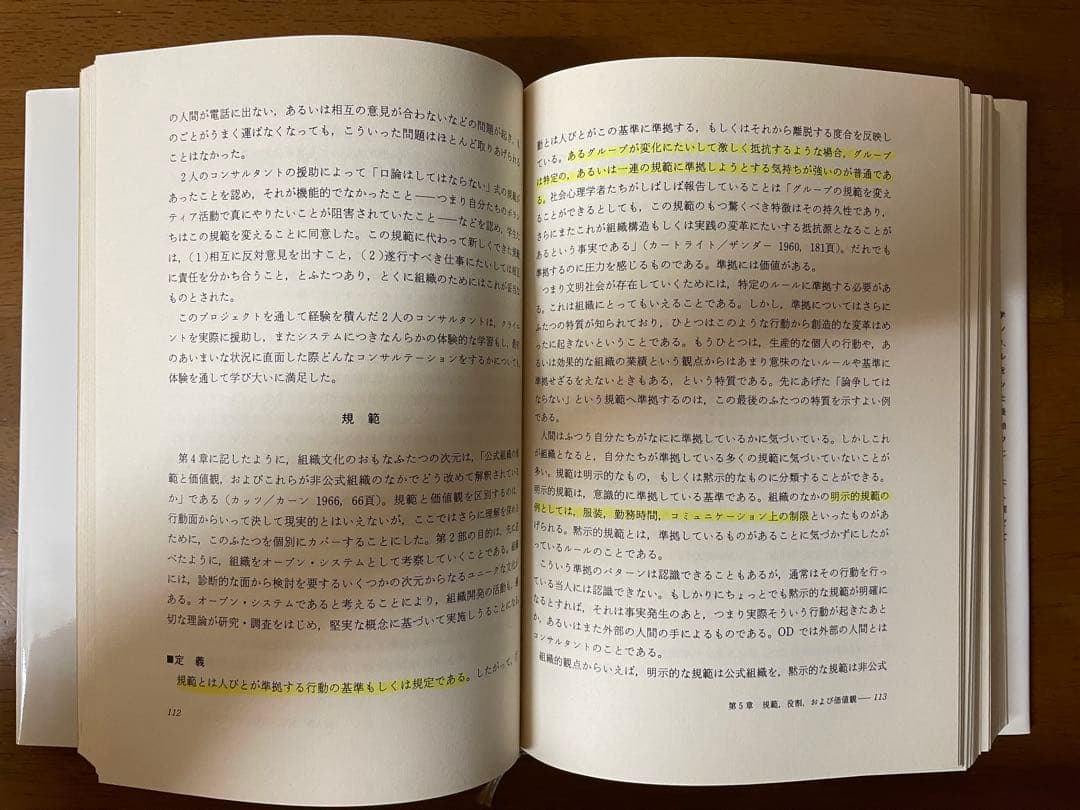 の人間が電話に出ない，あるいは相互の意見が合わないなどの問題が起き，
のごとがうまく運ばなくなっても，こういった問題はほとんど取りあげられる
ことはなかった。
2人のコンサルタントの援助によって「口論はしてはならない」式の規範が
あったことを認め，それが機能的でなかったこと――つまり自分たちのボラン
ティア活動で真にやりたいことが阻害されていたこと――などを認め，学生た
ちはこの規範を変えることに同意した。この規範に代わって新しくできた規範
は，(1)相互に反対意見を出すこと，(2)遂行すべき仕事にたいしては相互
に責任を分かち合うこと，とふたつあり，とくに組織のためにはこれが妥当な
ものとされた。
このプロジェクトを通して経験を積んだ2人のコンサルタントは，クライエ
ントを実際に援助し，またシステムにつきなんらかの体験的な学習もし，
のあいまいな状況に直面した際どんなコンサルテーションをするかについても
体験を通して学び大いに満足した。
規範
第4章に記したように，組織文化のおもなふたつの次元は，「公式組織の規
範と価値観，およびこれらが非公式組織のなかでどう改めて解釈されている
か」である（カッツ／カーン 1966, 66頁）。規範と価値観を区別するのは，
行動面からいって決して現実的とはいえないが，ここではさらに理解を深める
ために，このふたつを個別にカバーすることにした。第2部の目的は，先に述
べたように，組織をオープン・システムとして考察していくことである。組織
には，診断的な面から検討を要するいくつかの次元からなるユニークな文化が
ある。オープン・システムであると考えることにより，組織開発の活動も，
切な理論が研究・調査をはじめ，堅実な概念に基づいて実施しうることになる
■定義
規範とは人びとが準拠する行動の基準もしくは規定である。したがって，
112
動とは人びとがこの基準に準拠する，もしくはそれから離脱する度合を反映し
ている。あるグループが変化にたいして激しく抵抗するような場合，グループ
は特定の，あるいは一連の規範に準拠しようとする気持ちが強いのが普通であ
る。社会心理学者たちがしばしば報告していることは「グループの規範を変え
ることができるとしても，この規範のもつ驚くべき特徴はその持久性であり，
さらにまたこれが組織構造もしくは実践の変革にたいする抵抗源となることが
あるという事実である」（カートライト／ザンダー 1960, 181頁）。だれでも
準拠するのに圧力を感じるものである。準拠には価値がある。
つまり文明社会が存在していくためには，特定のルールに準拠する必要があ
る。これは組織にとってもいえることである。しかし，準拠についてはさらに
ふたつの特質が知られており，ひとつはこのような行動から創造的な変革はめ
ったに起きないということである。もうひとつは，生産的な個人の行動や，あ
るいは効果的な組織の業績という観点からはあまり意味のないルールや基準に
準拠せざるをえないときもある，という特質である。先にあげた「論争しては
ならない」という規範へ準拠するのは，この最後のふたつの特質を示すよい例
である。
人間はふつう自分たちがなにに準拠しているかに気づいている。しかしこれ
が組織となると，自分たちが準拠している多くの規範に気づいていないことが
多い。規範は明示的なもの，もしくは黙示的なものに分類することができる。
明示的規範は，意識的に準拠している基準である。組織のなかの明示的規範の
例としては，服装，勤務時間，コミュニケーション上の制限といったものがあ
げられる。黙示的規範とは，準拠しているものがあることに気づかずにしたが
っているルールのことである。
こういう準拠のパターンは認識できることもあるが，通常はその行動を行っ
ている当人には認識できない。もしかりにちょっとでも黙示的な規範が明確に
なるとすれば，それは事実発生のあと，つまり実際そういう行動が起きたあと
か，あるいはまた外部の人間の手によるものである。ODでは外部の人間とは
コンサルタントのことである。
組織的観点からいえば，明示的な規範は公式組織を，黙示的な規範は非公式
第5章 規範，役割，および価値観――113